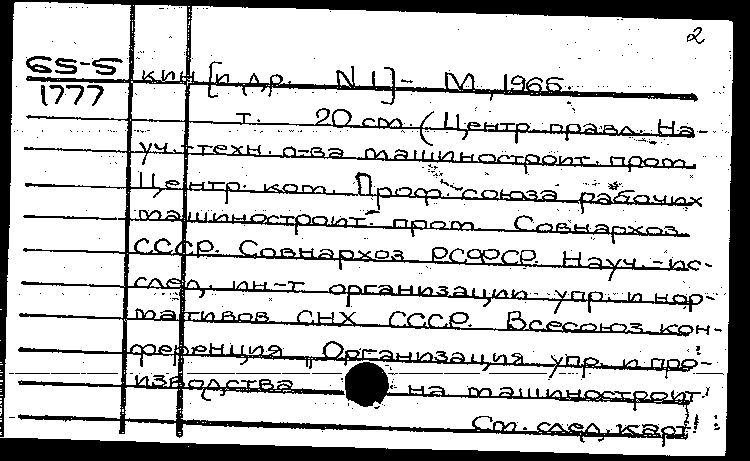 2
65-5
1777
кин [и др. N 1] - М., 1965.
т. 20 см. (Центр. правл. На-
уч.-техн. о-ва машиностроит. пром.
Центр. ком. Проф. союза рабочих
машиностроит. пром. Совнархоз
СССР. Совнархоз РСФСР. Науч.-ис-
след. ин-т организации упр. и нор-
мативов СНХ СССР. Всесоюз. кон-
ференция „Организация упр. и про-
изводства на машиностроит.
См. след. карт.